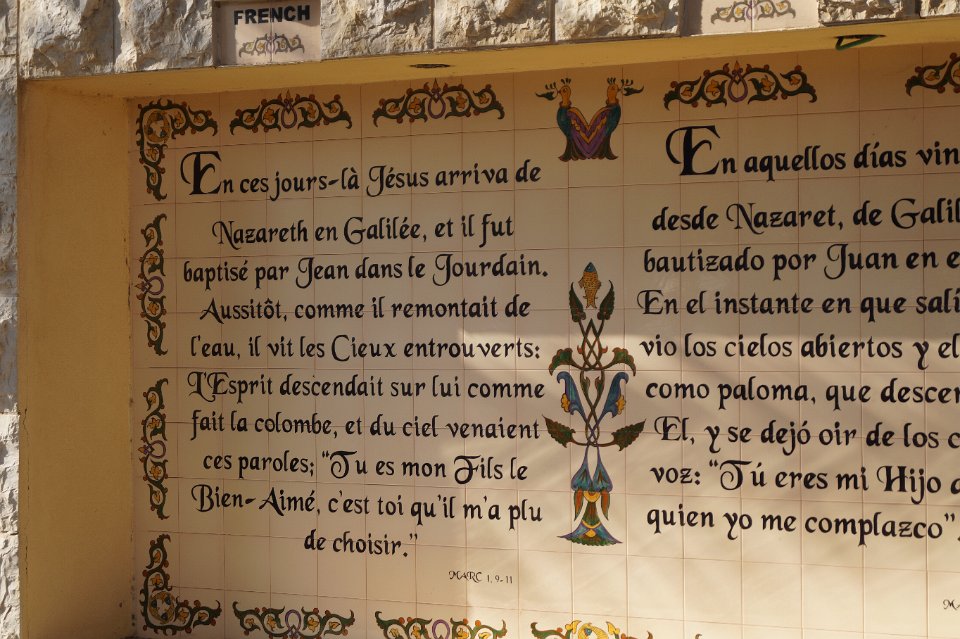 FRENCH
En ces jours-là Jésus arriva de
Nazareth en Galilée, et il fut
baptisé par Jean dans le Jourdain.
Aussitôt, comme il remontait de
l'eau, il vit les Cieux entrouverts:
L'Esprit descendait sur lui comme
fait la colombe, et du ciel venaient
ces paroles; "Tu es mon Fils le
Bien-Aimé, c'est toi qu'il m'a plu
de choisir."
MARC 1, 9-11
En aquellos días
desde Nazaret, de
bautizado por Juan en
En el instante en que
vio los cielos abiertos y
como paloma, que
El, y se dejó oir de los
voz: "Tú eres mi Hijo
quien yo me complazco"